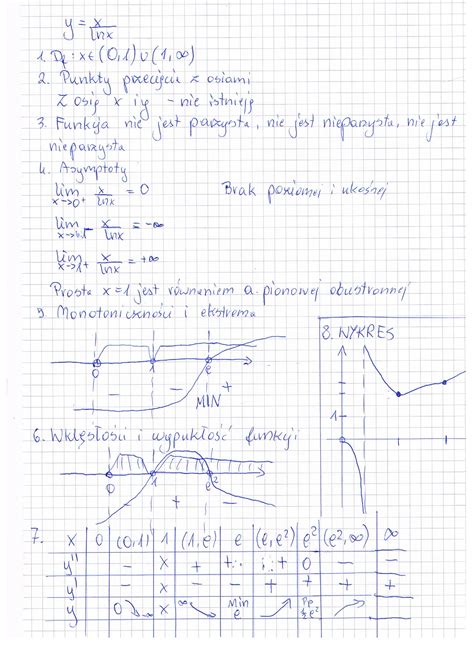 y = x/lnx
1. Df: x ∈ (0,1) ∪ (1,∞)
2. Punkty przecięcia z osiami
Z osią x i y - nie istnieją
3. Funkcja nie jest parzysta, nie jest nieparzysta, nie jest
nieparzysta
4. Asymptoty
lim x→0+ x/lnx = 0 Brak poziomej i ukośnej
lim x→1- x/lnx = -∞
lim x→1+ x/lnx = +∞
Prosta x=1 jest równaniem a. pionowej obustronnej
5 Monotoniczności i ekstrema
0 1 e
- - +
MIN
8. WYKRES
1
6. Wklęsłości i wypukłość funkcji
0 1 e²
- + -
7. x | 0 | (0,1) | 1 | (1,e) | e | (e,e²) | e² | (e²,∞) | ∞
y'' | - | x | + | + | + | 0 | - | -
y' | - | x | - | - | + | + | + | +
y | 0 | x | ∞ | Min e | Pp ½e²